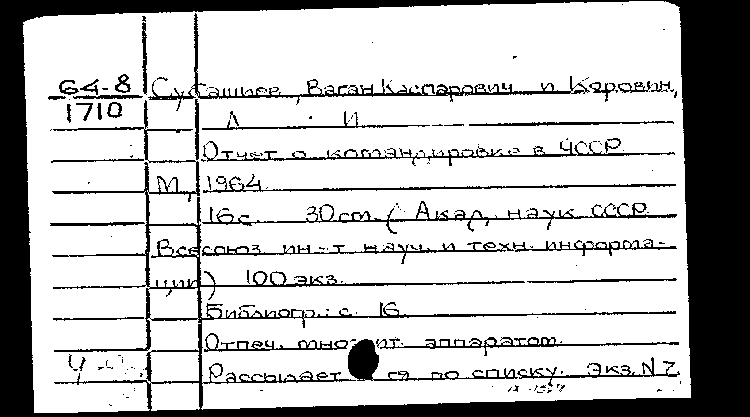 64-8 Субашиев, Ваган Каспарович и Коровин,
1710
Л. И.
Отчет о командировке в ЧССР.
М., 1964.
16 с. 30 cm. (Акад. наук СССР.
Всесоюз. ин-т науч. и техн. информа-
ции) 100 экз.
Библиогр.: с. 16.
Отпеч. множит. аппаратом.
Рассылает ся по списку. Экз. N 7.